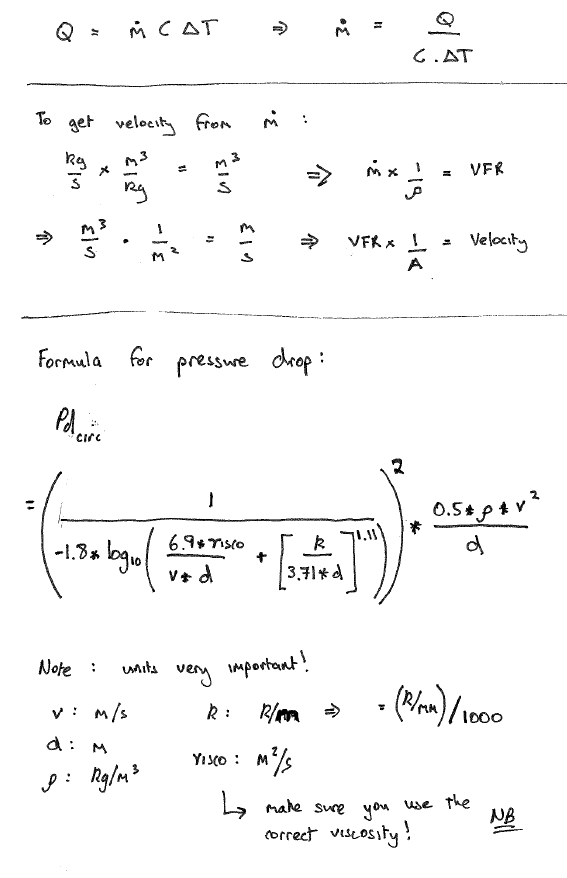 Q = ṁ C ΔT ⇒ ṁ = Q / C.ΔT
To get velocity from ṁ :
kg/s × m³/kg = m³/s ⇒ ṁ × 1/ρ = VFR
⇒ m³/s . 1/m² = m/s ⇒ VFR × 1/A = Velocity
Formula for pressure drop:
Pd circ
= ( 1 / -1.8 * log₁₀ ( 6.9 * visco / v * d + [ k / 3.71 * d ]^1.11 ) )² * 0.5 * ρ * v² / d
Note : units very important!
v : m/s k : k/m ⇒ = (k/mm)/1000
d : m visco : m²/s
ρ : kg/m³
↳ make sure you use the NB
correct viscosity!